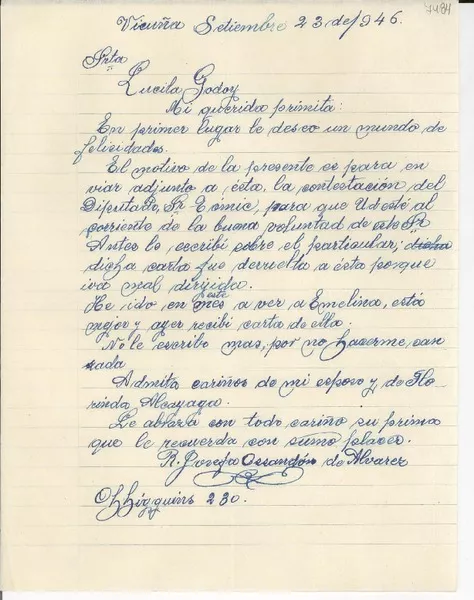 7484
Vicuña Setiembre 23 de 1946.
Srta
Lucila Godoy
Mi querida primita:
En primer lugar le deseo un mundo de
felicidades.
El motivo de la presente es para en
viar adjunto a ésta, la contestación del
Diputado, Sr Tomic, para que Ud esté al
corriente de la buena voluntad de este Sr
Antes le escribí sobre el particular, dicha
dicha carta fue devuelta a ésta porque
iva mal dirijida.
He ido en este mes a ver a Emelina, está
mejor y ayer recibí carta de ella.
No le escribo mas, por no hacerme can
zada
Admita cariños de mi esposo y de Flo
rinda Alcayaga.
Le abraza con todo cariño su prima
que le recuerda con sumo placer.
R. Josefa Ossandón de Alvarez
O'Higguins 230.